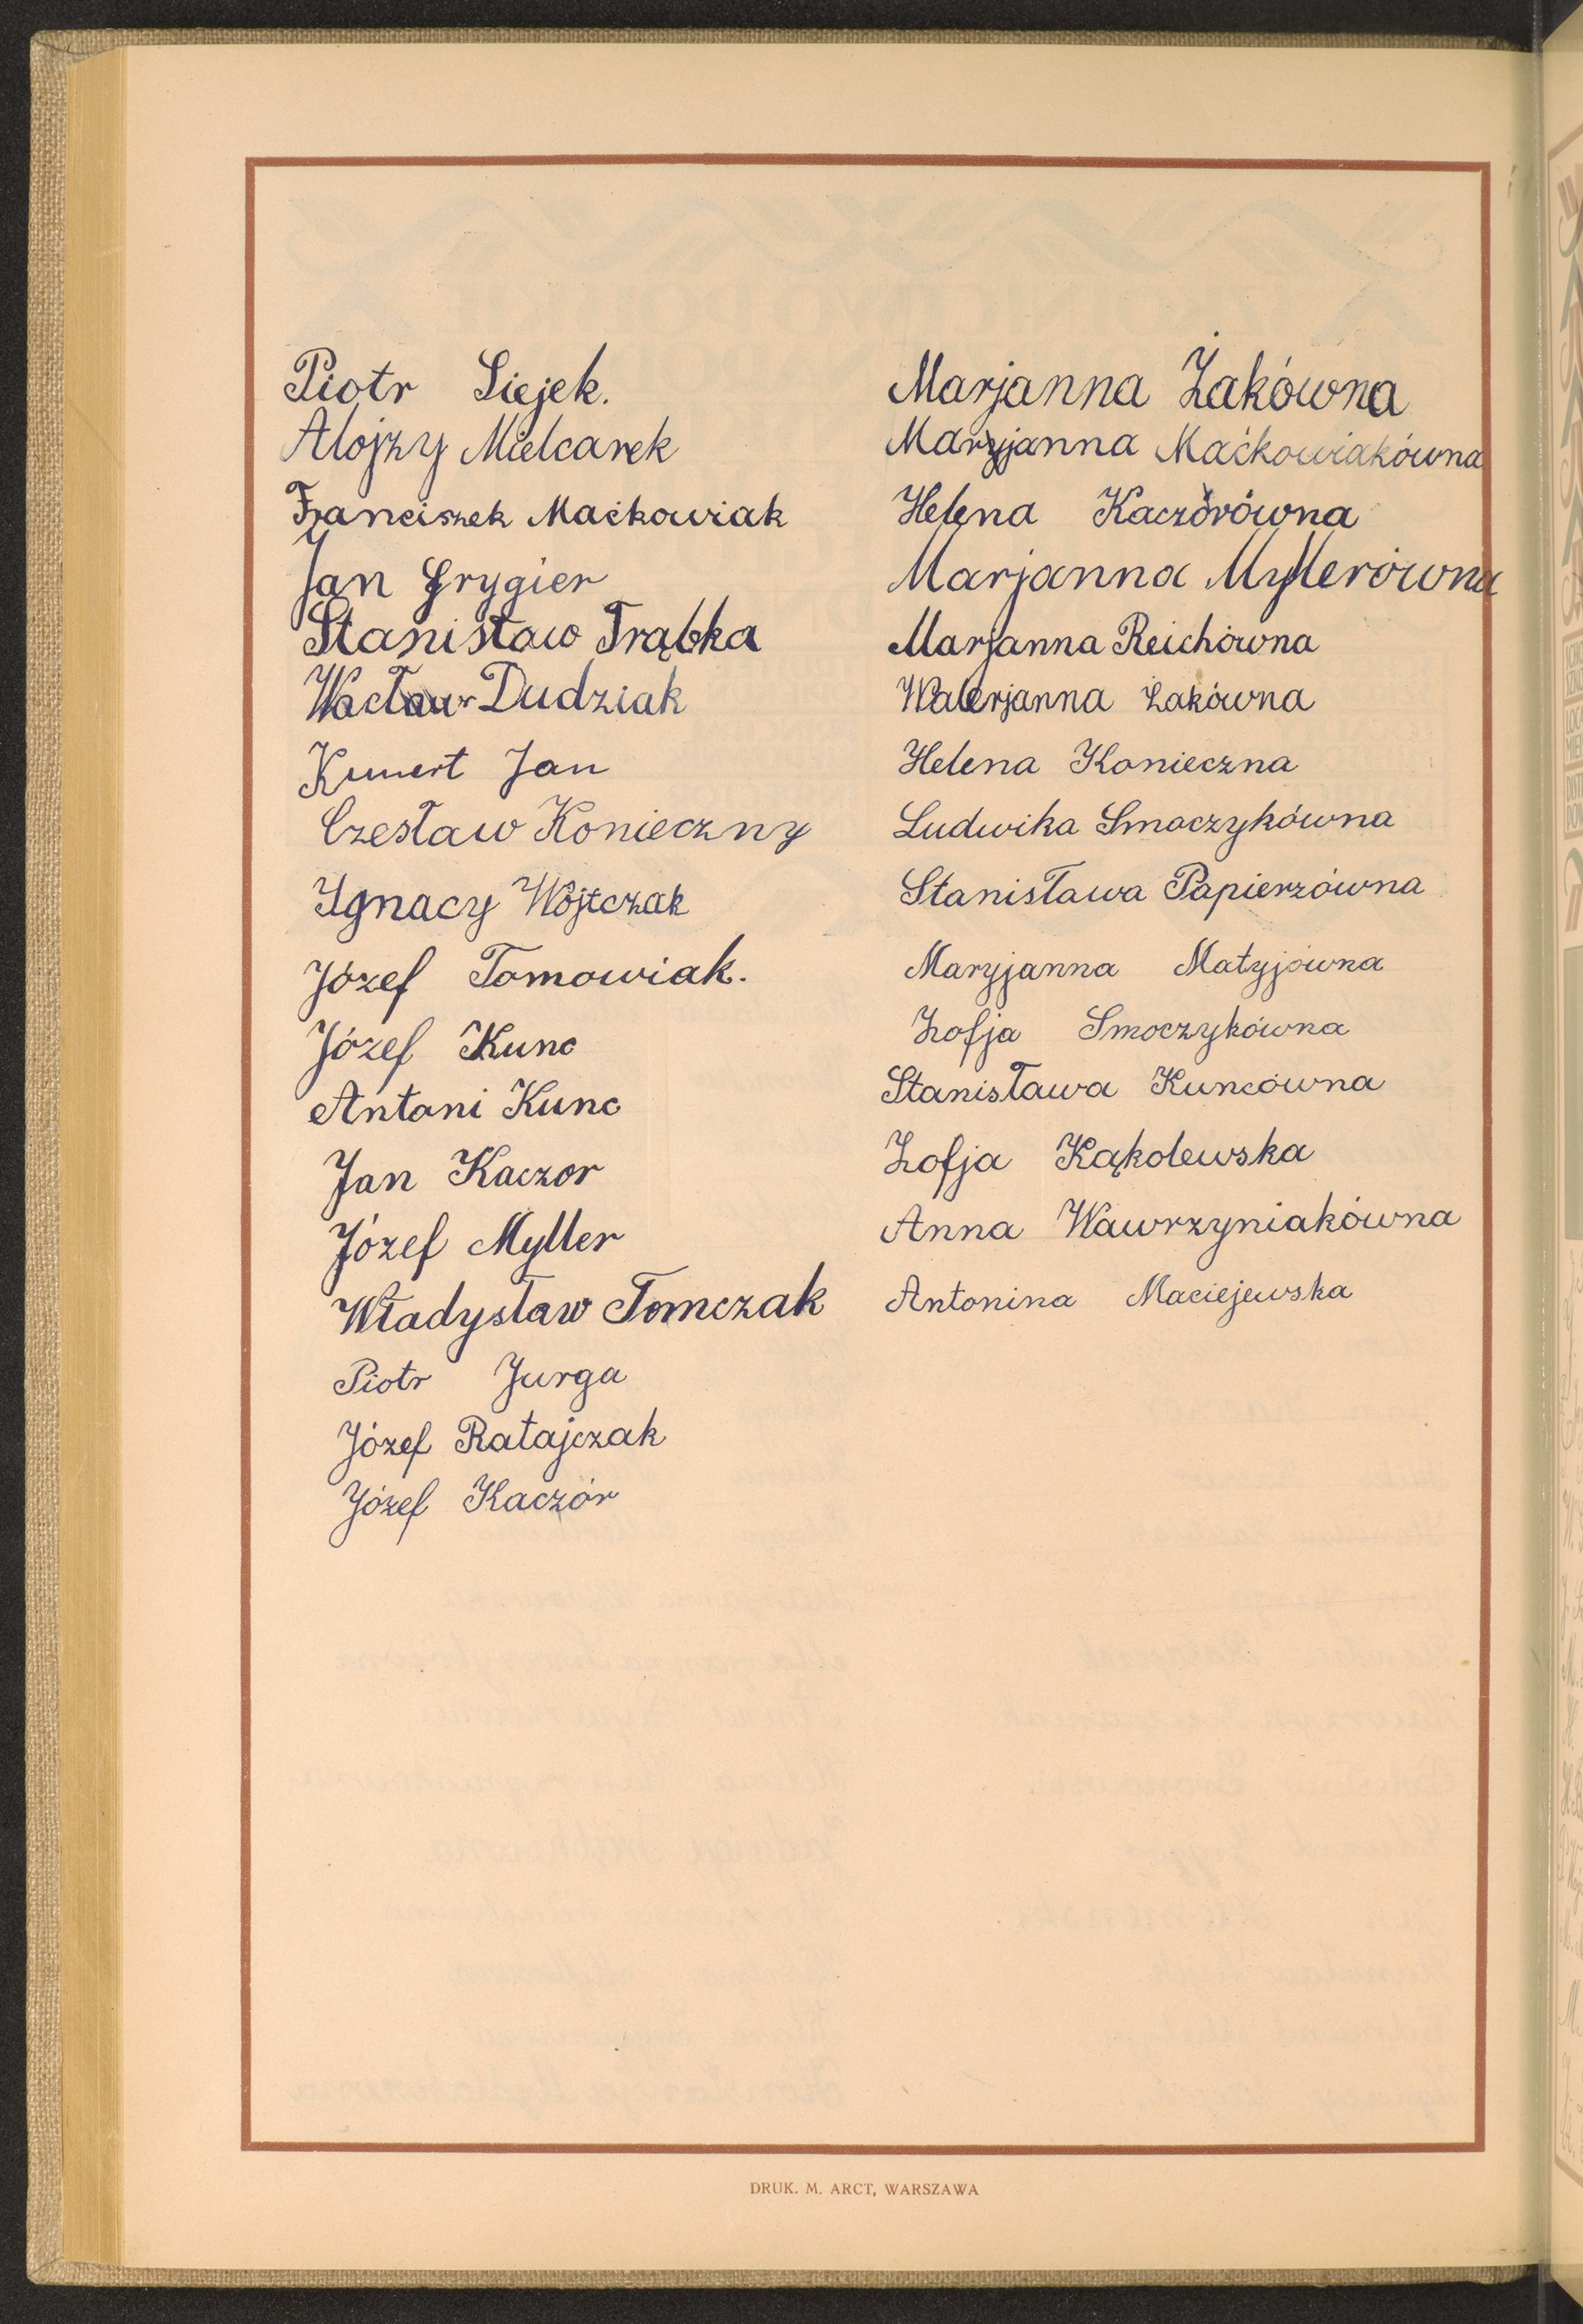 Piotr Siejek.
Alojzy Mielcarek
Franciszek Maćkowiak
Jan Grygier
Stanisław Trąbka
Wacław Dudziak
Kunert Jan
Czesław Konieczny
Ignacy Wojtczak
Józef Tomowiak.
Józef Kunc
Antoni Kunc
Jan Kaczor
Józef Myller
Władysław Tomczak
Piotr Jurga
Józef Ratajczak
Józef Kaczór
Marjanna Żakówna
Maryjanna Maćkowiakówna
Helena Kaczórówna
Marjanna Myllerówna
Marjanna Reichówna
Walerjanna Żakówna
Helena Konieczna
Ludwika Smoczykówna
Stanisława Papierzówna
Maryjanna Matyjówna
Zofja Smoczykówna
Stanisława Kuncówna
Zofja Kąkolewska
Anna Wawrzyniakówna
Antonina Maciejewska
DRUK. M. ARCT, WARSZAWA